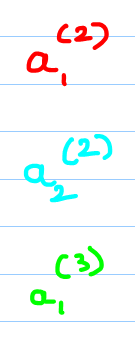 a₁⁽²⁾
a₂⁽²⁾
a₁⁽³⁾